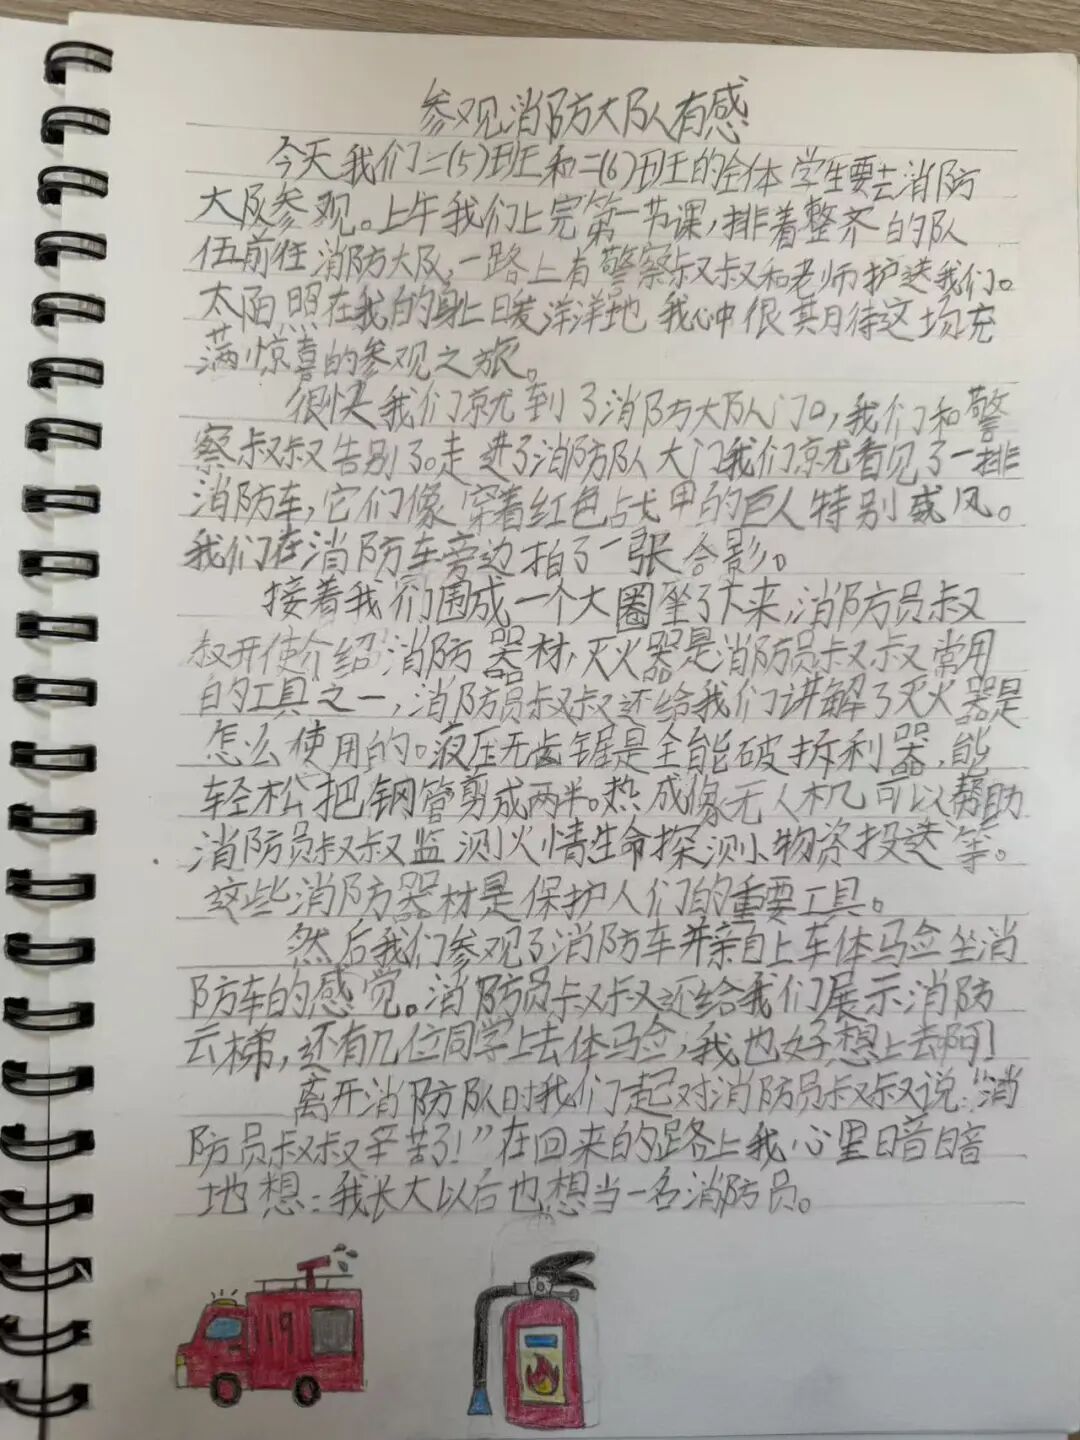 参观消防大队有感
今天我们二(5)班和二(6)班的全体学生要去消防
大队参观。上午我们上完第一节课,排着整齐的队
伍前往消防大队,一路上有警察叔叔和老师护送我们。
太阳照在我的身上暖洋洋地 我心中很期待这场充
满惊喜的参观之旅。
很快我们就到了消防大队门口,我们和警
察叔叔告别了。走进了消防队大门我们就看见了一排
消防车,它们像穿着红色战甲的巨人特别威风。
我们在消防车旁边拍了一张合影。
接着我们围成一个大圈坐了下来,消防员叔
叔开使介绍消防器材,灭火器是消防员叔叔常用
的工具之一,消防员叔叔还给我们讲解了灭火器是
怎么使用的。液压无齿锯是全能破拆利器,能
轻松把钢管剪成两半。热成像无人机可以帮助
消防员叔叔监测火情生命探测小物资投送等。
这些消防器材是保护人们的重要工具。
然后我们参观了消防车并亲自上车体马佥坐消
防车的感觉。消防员叔叔还给我们展示消防
云梯,还有几位同学上去体马佥,我也好想上去啊!
离开消防队时我们一起对消防员叔叔说:“消
防员叔叔辛苦了!”在回来的路上我心里暗暗
地想:我长大以后也想当一名消防员。
119